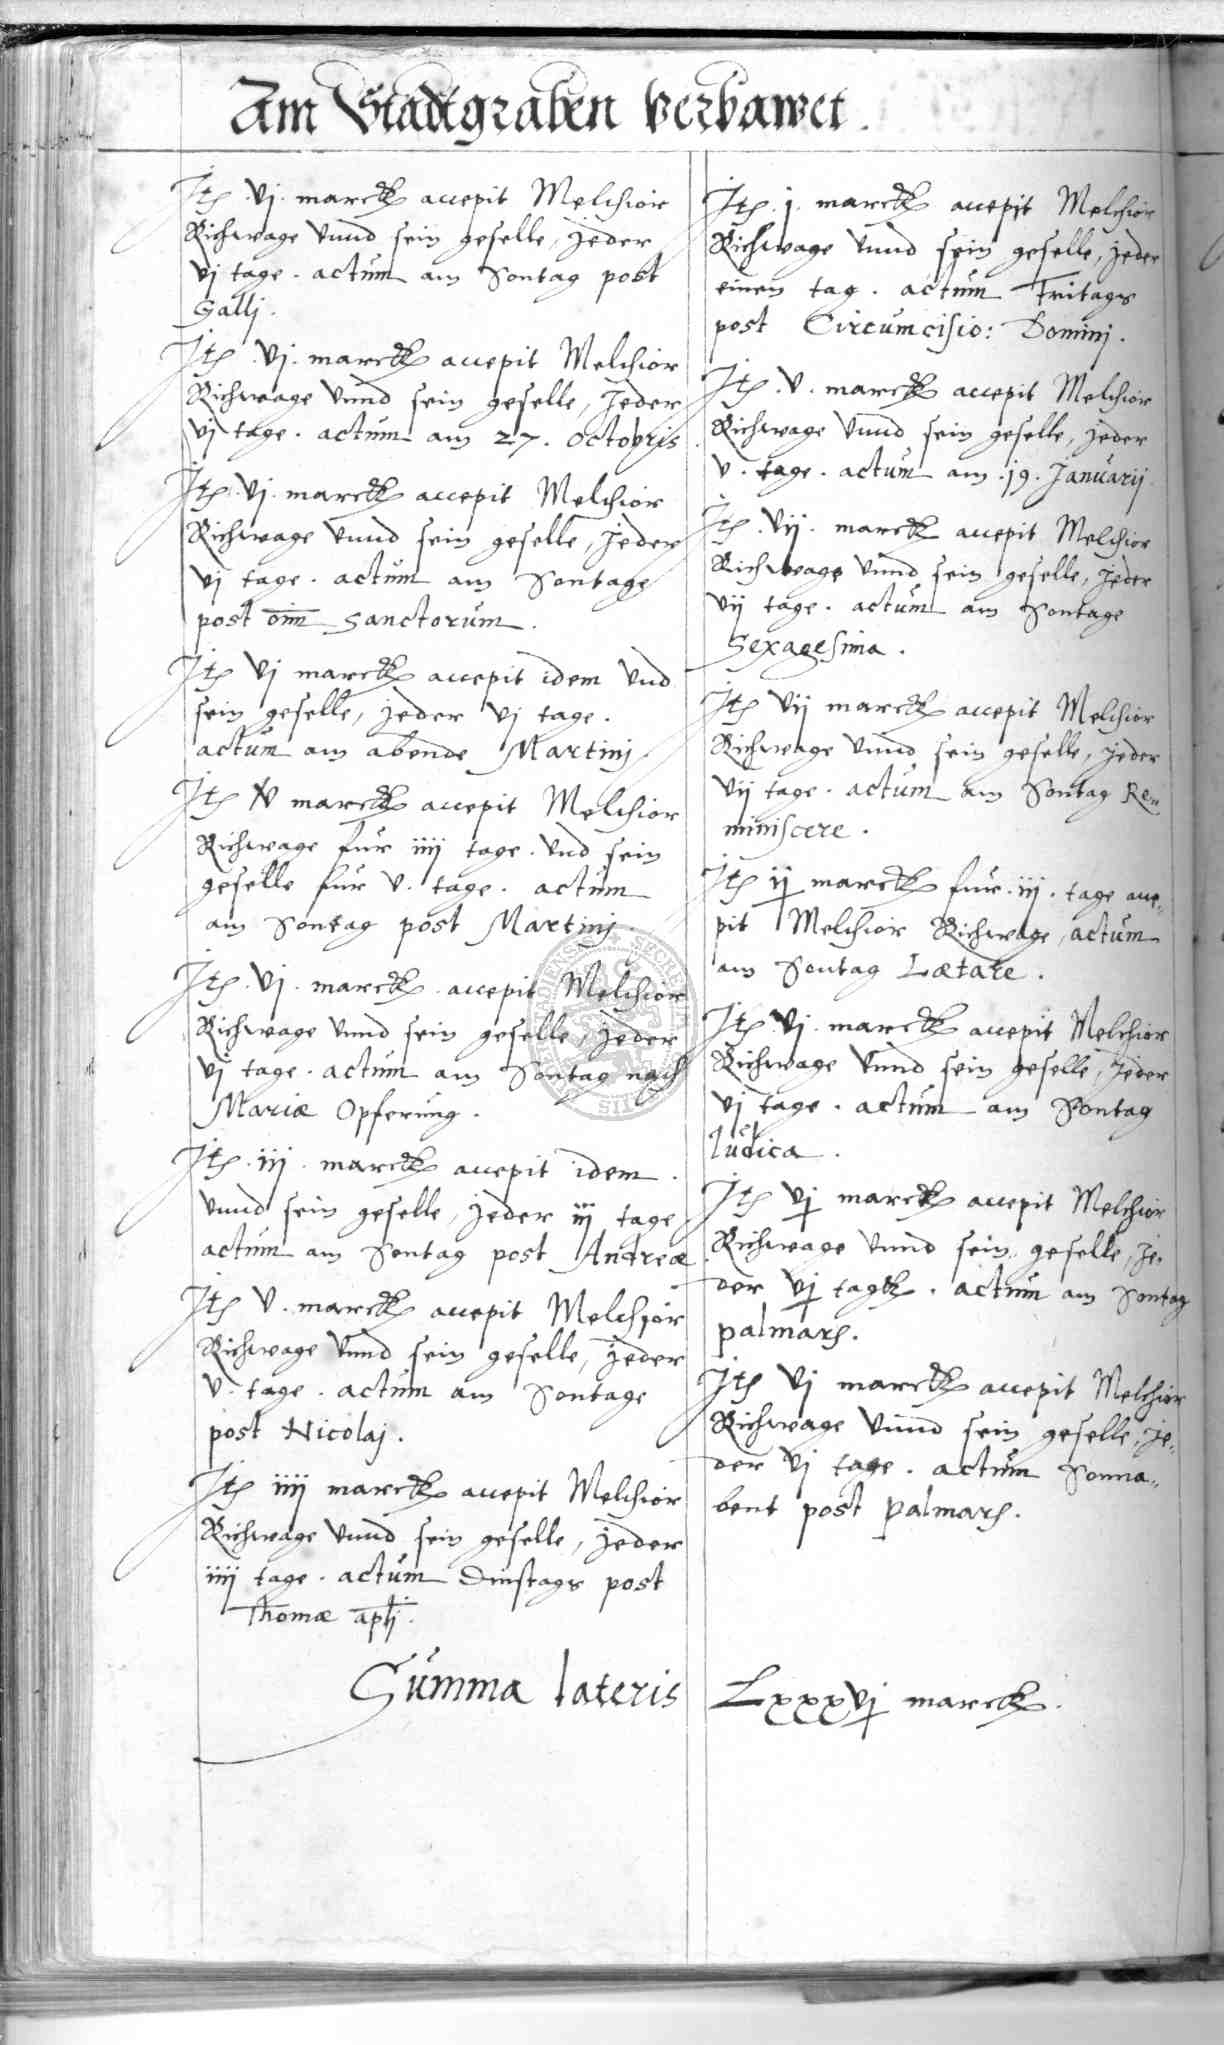 Am Stadtgraben verbawet.
Itē vj. marck accepit Melchior
Richwage vnnd sein geselle, jeder
vj tage. actum am Sontag post
Galli.
Itē vj. marck accepit Melchior
Richwage vnnd sein geselle, jeder
vj tage. actum am 27. octobris
Itē vj. marck accepit Melchior
Richwage vnnd sein geselle, jeder
vj tage. actum am Sontage
post oīm Sanctorum.
Itē vj marck accepit idem vnd
sein geselle, jeder vj tage.
actum am abende Martinj
Itē v marck accepit Melchior
Richwage fur iiij tage. vnd sein
geselle fur v. tage. actum
am Sontag post Martinj.
Itē. vj. marck accepit Melchior
Richwage vnnd sein geselle, jeder
vj tage. actum am Sontag nach
Mariæ Opferung.
Itē. iij. marck accepit idem.
vnnd sein geselle, jeder iij tage
actum am Sontag post Andreæ
Itē v. marck accepit Melchior
Richwage vnnd sein geselle, jeder
v. tage. actum am Sontage
post Nicolaj.
Itē iiij marck accepit Melchior
Richwage vnnd sein geselle, jeder
iiij tage. actum Dinstags post
Thomæ apli.
Itē. j. marck accepit Melchior
Richwage vnnd sein geselle, jeder
einen tag. actum Fritags
post Circumcisio: Dominj.
Itē. v. marck accepit Melchior
Richwage vnnd sein geselle, jeder
v. tage. actum am .19. Januarij.
Itē. vij. marck accepit Melchior
Richwage vnnd sein geselle, jeder
vij tage. actum am Sontage
Sexagesima.
Itē vij marck accepit Melchior
Richwage vnnd sein geselle, jeder
vij tage. actum am Sontag Re„
miniscere.
Itē ij marck fur. iij. tage acce„
pit Melchior Richwage, actum
am Sontag Lætare.
Itē. vj. marck accepit Melchior
Richwage vnnd sein geselle, jeder
vj tage. actum am Sontag
Iudica.
Itē vj marck accepit Melchior
Richwage vnnd sein geselle, je„
der vj tage. actum am Sontag
palmarȝ.
Itē vj marck accepit Melchior
Richwage vnnd sein geselle, je„
der vj tage. actum Sonna„
bent post palmarȝ.
Summa lateris Lxxxvj marck.